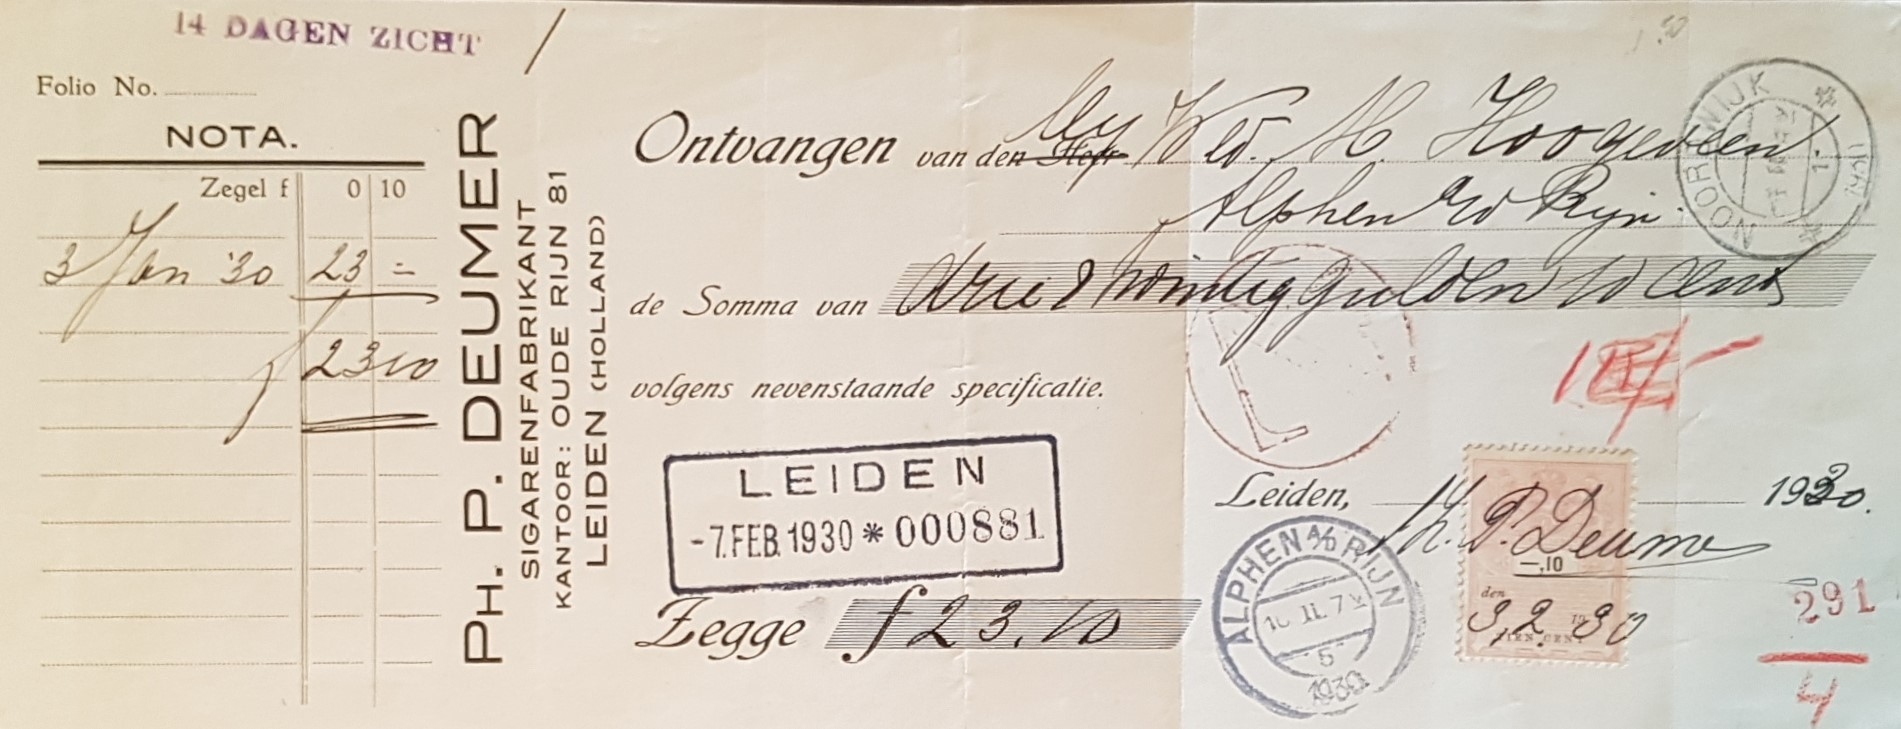 14 DAGEN ZICHT
Folio No.
NOTA.
Zegel f 0 10
3 Jan '30 23 =
f 23 10
PH. P. DEUMER
SIGARENFABRIKANT
KANTOOR: OUDE RIJN 81
LEIDEN (HOLLAND)
Ontvangen van den Heer Wed. H. Hoogeveen
Alphen a/d Rijn.
de Somma van drie & twintig gulden 10 cent
volgens nevenstaande specificatie.
LEIDEN
-7.FEB.1930 * 000881
Zegge f 23.10
Leiden, 1930.
Ph. P. Deumer
-,10
den
3.2.1930
TIEN CENT
NOORDWIJK
ALPHEN A/D RIJN
10.II.7
5
1930
291
4